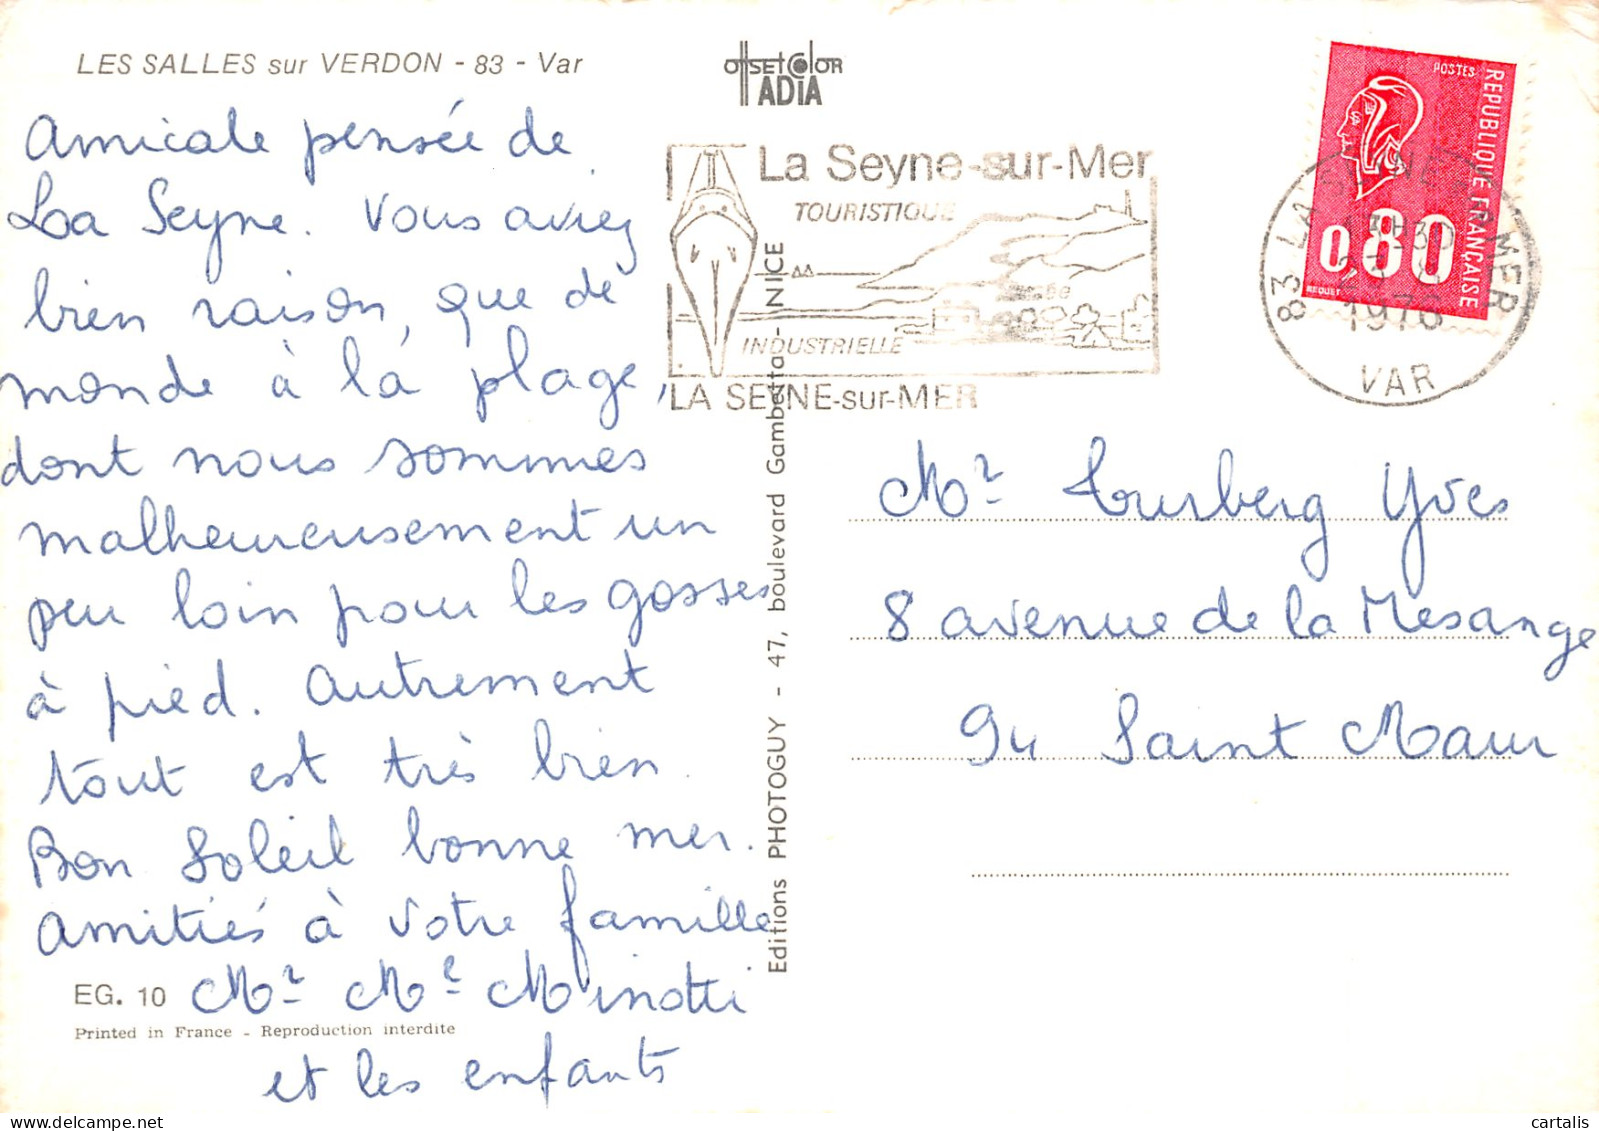 LES SALLES sur VERDON - 83 - Var
Amicale pensée de
La Seyne. Vous aviez
bien raison, que de
monde à la plage,
dont nous sommes
malheureusement un
peu loin pour les gosses
à pied. Autrement
tout est très bien.
Bon Soleil bonne mer.
Amitiés à votre famille
Mr Me Minotti
et les enfants
EG. 10
Printed in France - Reproduction interdite
OffsetColor
ADIA
Editions PHOTOGUY - 47, boulevard Gambetta - NICE
La Seyne-sur-Mer
TOURISTIQUE
INDUSTRIELLE
LA SEYNE-sur-MER
POSTES
REPUBLIQUE FRANÇAISE
0,80
BEQUET
83 LA SEYNE S MER
1976
VAR
Mr Lurberg Yves
8 avenue de la Mesange
94 Saint Maur
cartalis